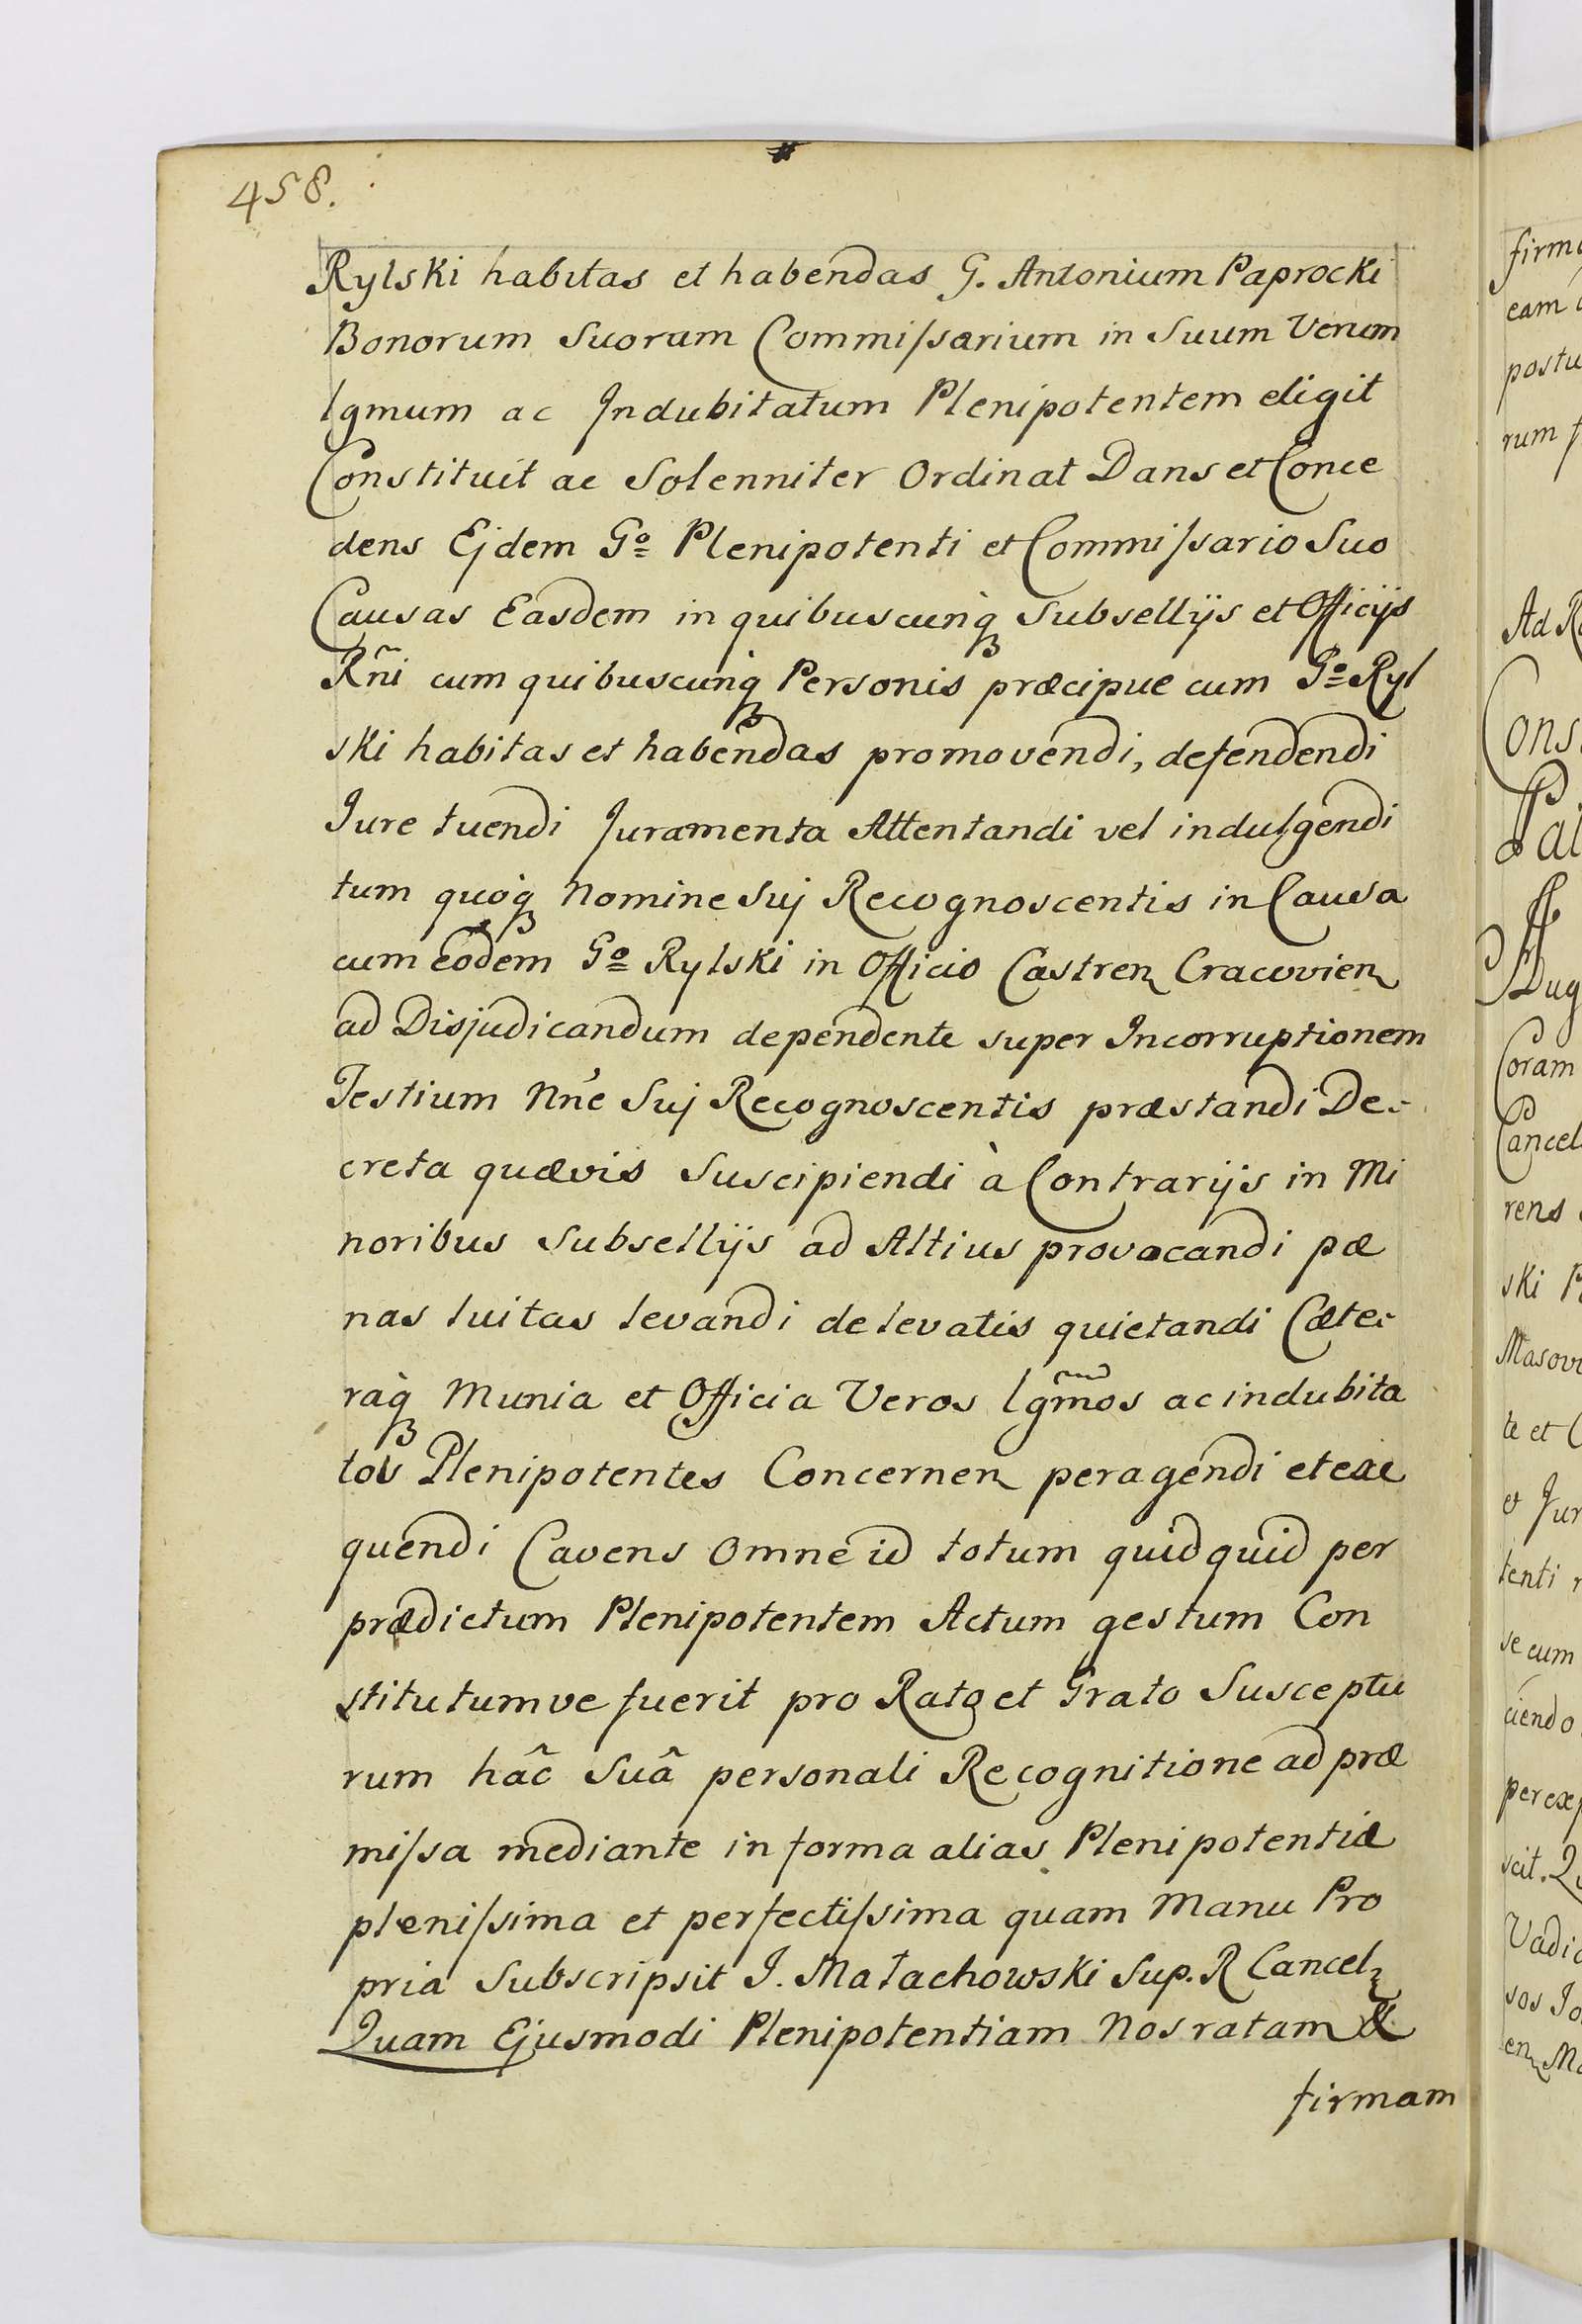 458.
Rylski habitas et habendas G. Antonium Paprocki
Bonorum Suorum Commiſsarium in Suum Verum
lgmum ac Indubitatum Plenipotentem eligit
Constituit ac Solenniter Ordinat Dans et Conce
dens Ejdem Go Plenipotenti et Commiſsario Suo
Causas Easdem in quibuscunq Subsellijs et Officijs
Rñi cum quibuscunq Personis præcipue cum Go Ryl
ski habitas et habendas promovendi, defendendi
Jure tuendi Juramenta Attentandi vel indulgendi
tum quoq Nomine Suj Recognoscentis in Causa
cum Eodem Go Rylski in Officio Castren Cracovien
ad Disjudicandum dependente super Incorruptionem
Testium Nne Suj Recognoscentis præstandi De-
creta quævis Suscipiendi à Contrarijs in Mi
noribus Subsellijs ad Altius provocandi pæ
nas luitas levandi de levatis quietandi Cæte-
raq Munia et Officia Veros lgmos ac indubita
tos Plenipotentes Concernen peragendi et exe
quendi Cavens Omne id totum quidquid per
prædictum Plenipotentem Actum gestum Con
stitutumve fuerit pro Rato et Grato Susceptu
rum hâc Suâ personali Recognitione ad præ
miſsa mediante in forma alias Plenipotentiæ
pleniſsima et perfectiſsima quam Manu Pro
pria Subscripsit J. Małachowski Sup. R Cancel
Quam Ejusmodi Plenipotentiam Nos ratam &
firmam
eam
postu
rum
Ad
Cons
Aug
Coram
Cancel
rens
ski
Masovi
te et
et Jur
tenti
se cum
ciendo
per
scit.
Vadi
sos Jo
en